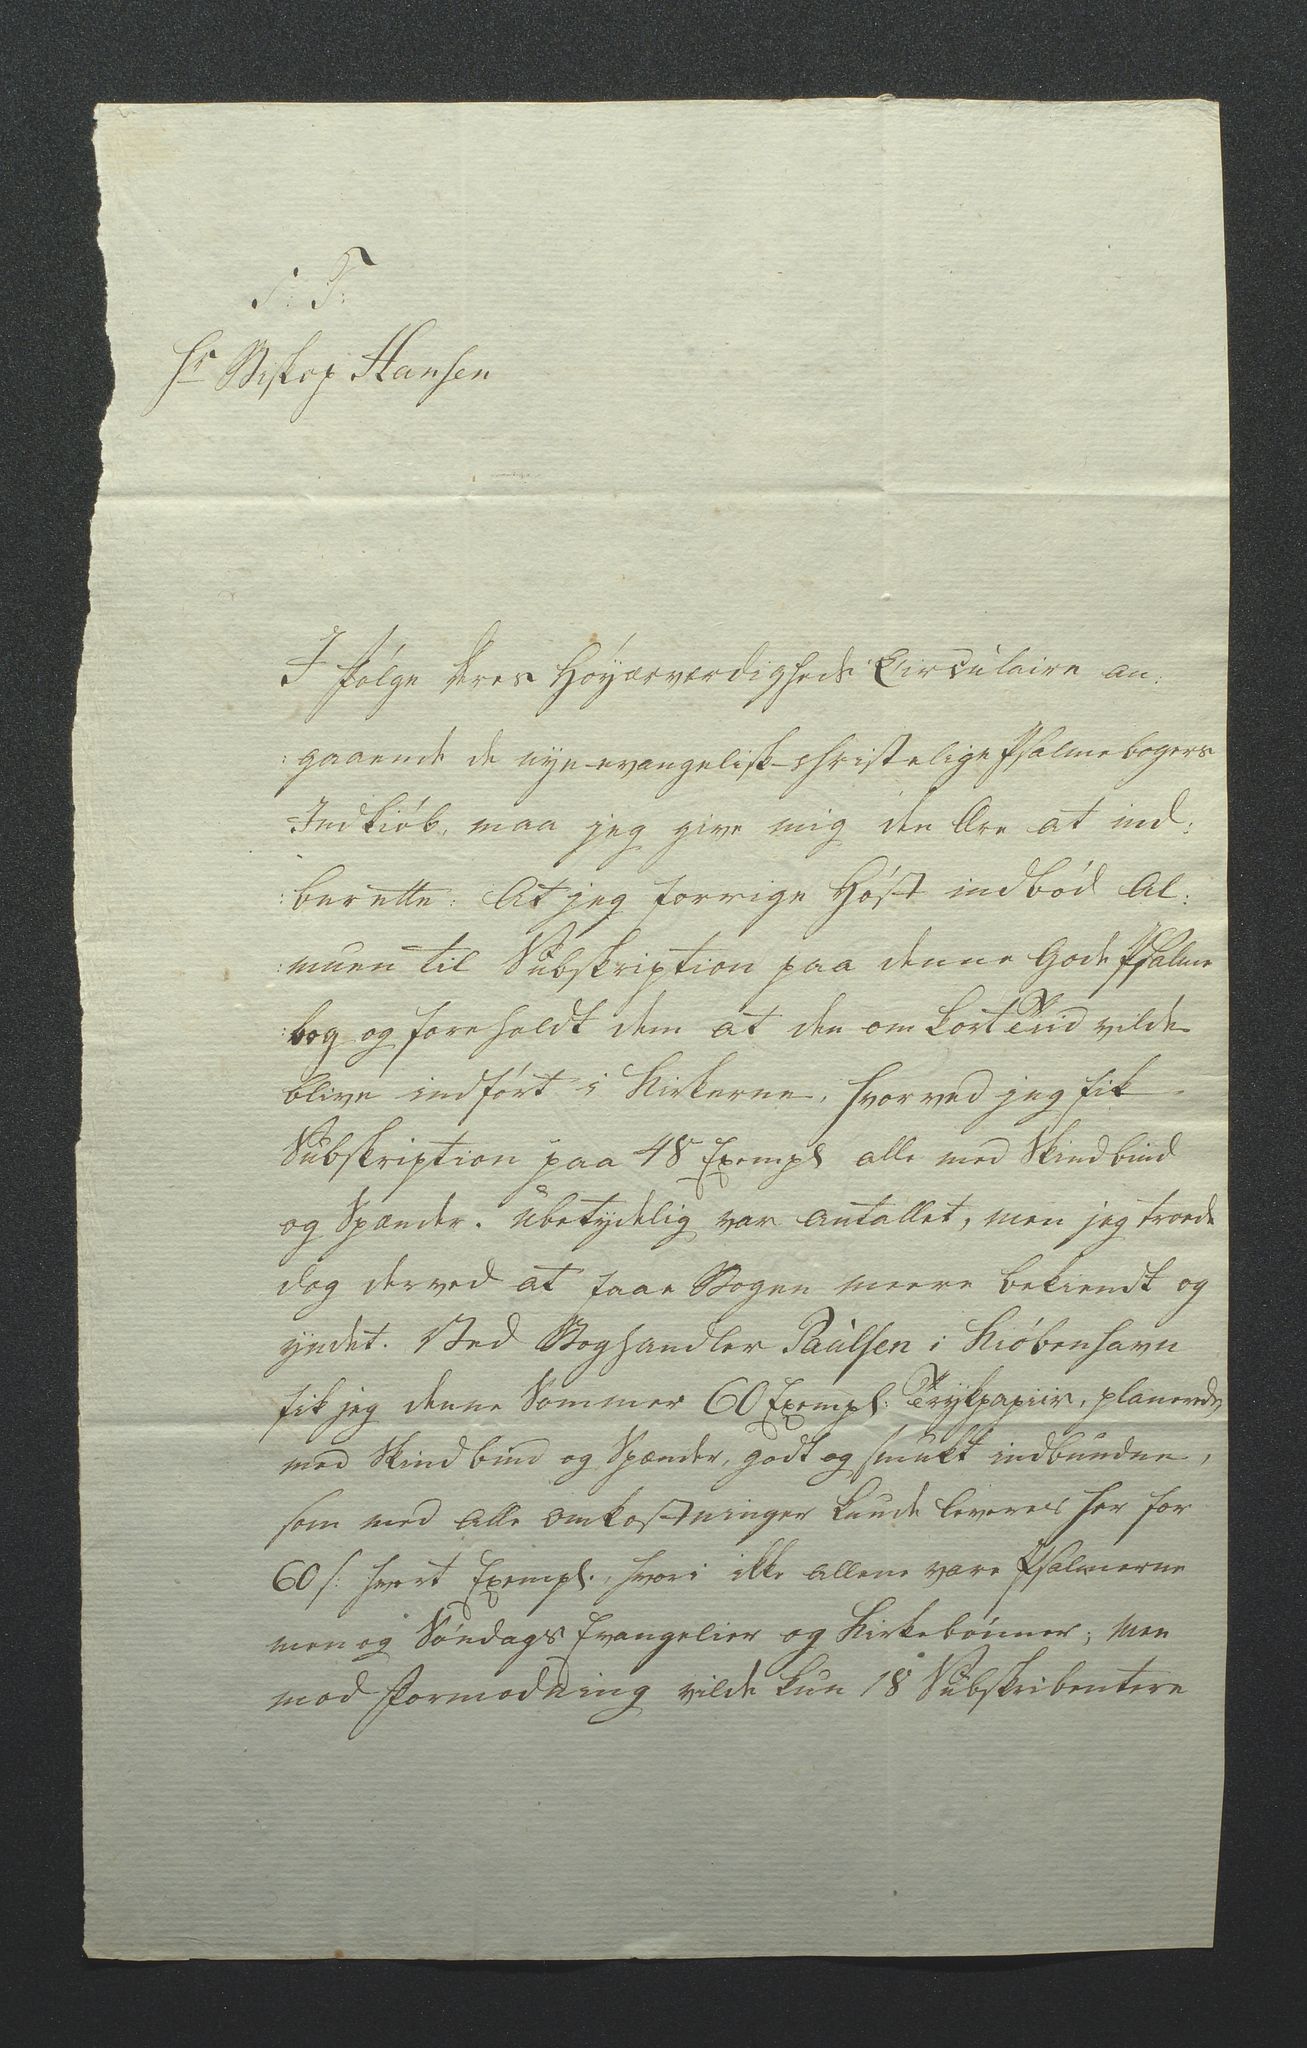 S: T:
Hr Biskop Hansen
I Følge Deres Høyærværdigheds Circulaire an:
:gaaende de nye evangelisk-christelige Psalmebogers
Indkiøb, maa jeg give mig den Ære at ind:
:berette: At jeg forrige Høst indbød Al:
:muen til Subskription paa denne gode Psalme
:bog og foreholdt dem at den om kort Tiid vilde
blive indført i Kirkerne, hvorved jeg fik
Subskription paa 48 Exempl alle med Skindbind
og Spænder. Ubetydelig var Antallet, men jeg troede
dog derved at faae Bogen meere bekiendt og
yndet. Ved Boghandler Paulsen i Kiøbenhavn
fik jeg denne Sommer 60 Exempl: Trykpapiir, planerede
med Skindbind og Spænder, godt og smukt indbundne,
som med alle Omkostninger kunde leveres her for
60 s: hvert Exempl., hvori ikke allene vare Psalmerne
men og Søndags Evangelier og Kirkebønner; men
mod Formodning vilde kun 18 Subskribentere